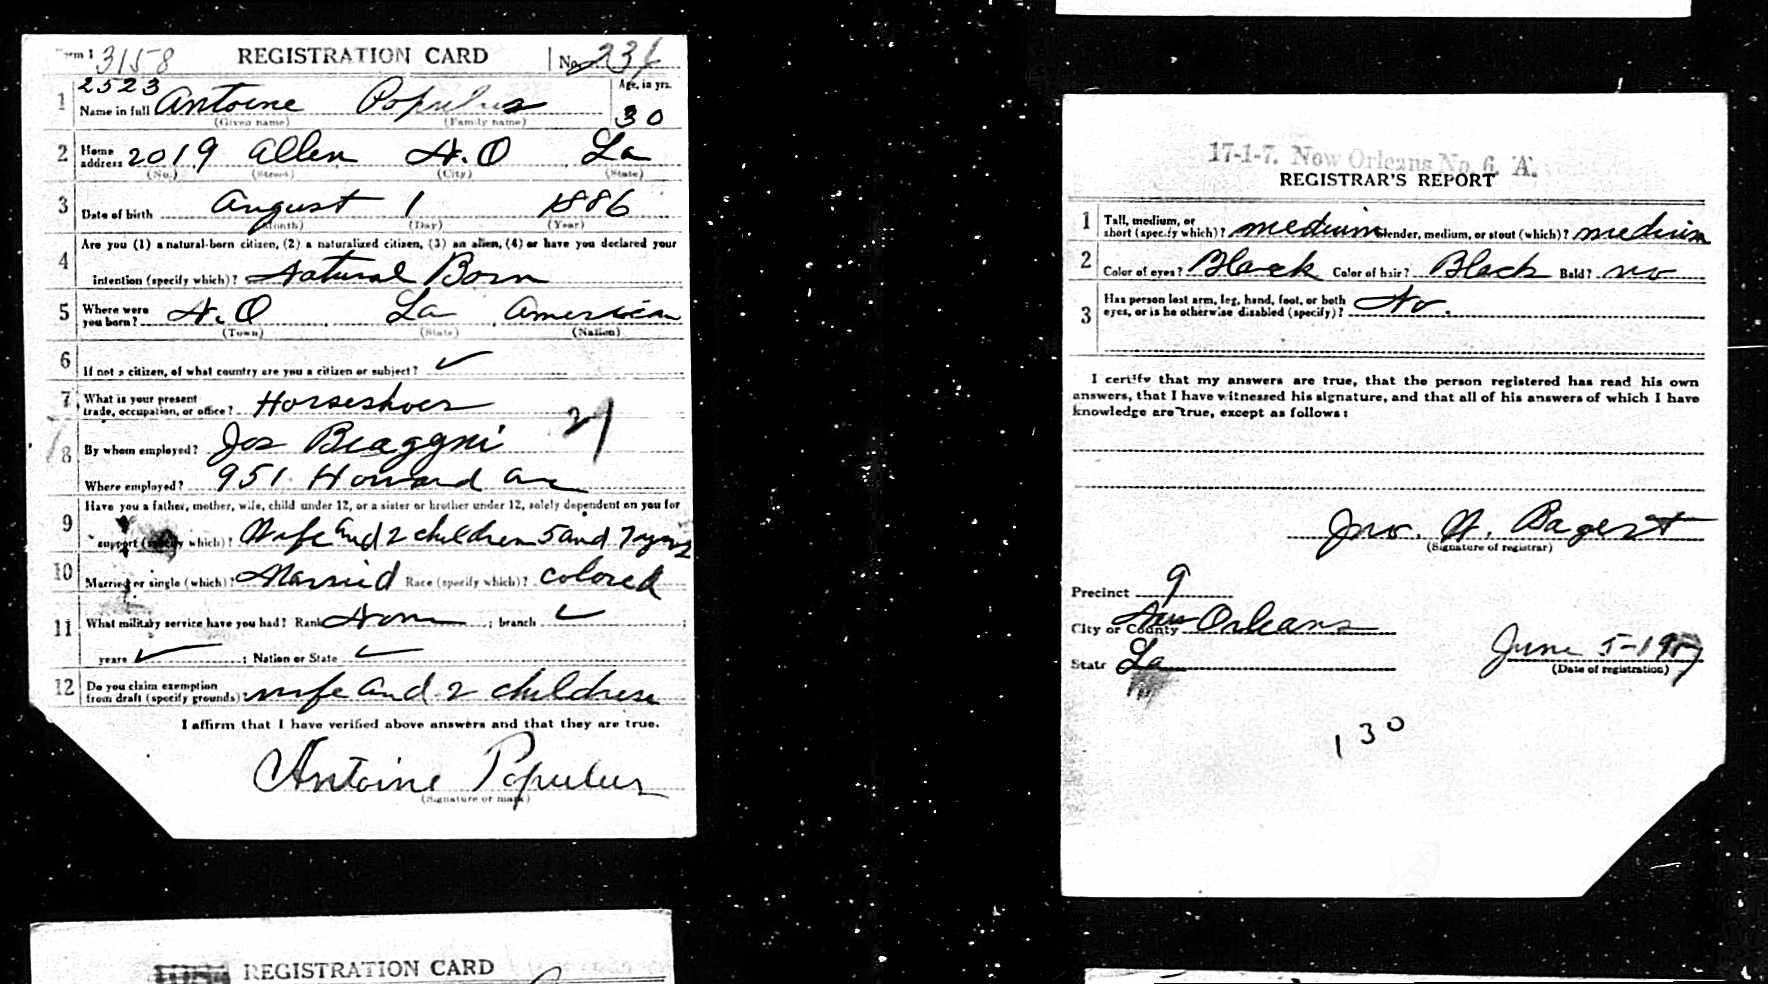 Form 1 3158 REGISTRATION CARD No. 234
2523
1 Name in full Antoine Populus Age, in yrs. 30
(Given name) (Family name)
2 Home address 2019 Allen N.O La
(No.) (Street) (City) (State)
3 Date of birth August 1 1886
(Month) (Day) (Year)
Are you (1) a natural-born citizen, (2) a naturalized citizen, (3) an alien, (4) or have you declared your
4 intention (specify which)? Natural Born
5 Where were you born? N.O La American
(Town) (State) (Nation)
6 If not a citizen, of what country are you a citizen or subject? ✓
7 What is your present trade, occupation, or office? Horseshoer 21
8 By whom employed? Jos Biaggni
Where employed? 951 Howard ave
9 Have you a father, mother, wife, child under 12, or a sister or brother under 12, solely dependent on you for
support (specify which)? Wife and 2 children 5 and 7 years
10 Married or single (which)? Married Race (specify which)? colored
11 What military service have you had? Rank None ; branch ✓ ;
years ✓ ; Nation or State ✓
12 Do you claim exemption from draft (specify grounds)? wife and 2 children
I affirm that I have verified above answers and that they are true.
Antoine Populus
(Signature or mark)
REGISTRATION CARD
17-1-7. New Orleans No. 6. A.
REGISTRAR'S REPORT
1 Tall, medium, or short (specify which)? medium Slender, medium, or stout (which)? medium
2 Color of eyes? Black Color of hair? Black Bald? no
3 Has person lost arm, leg, hand, foot, or both eyes, or is he otherwise disabled (specify)? No.
I certify that my answers are true, that the person registered has read his own
answers, that I have witnessed his signature, and that all of his answers of which I have
knowledge are true, except as follows:
Jno. H. Bagert
(Signature of registrar)
Precinct 9
City or County New Orleans
State La
June 5-1917
(Date of registration)
130